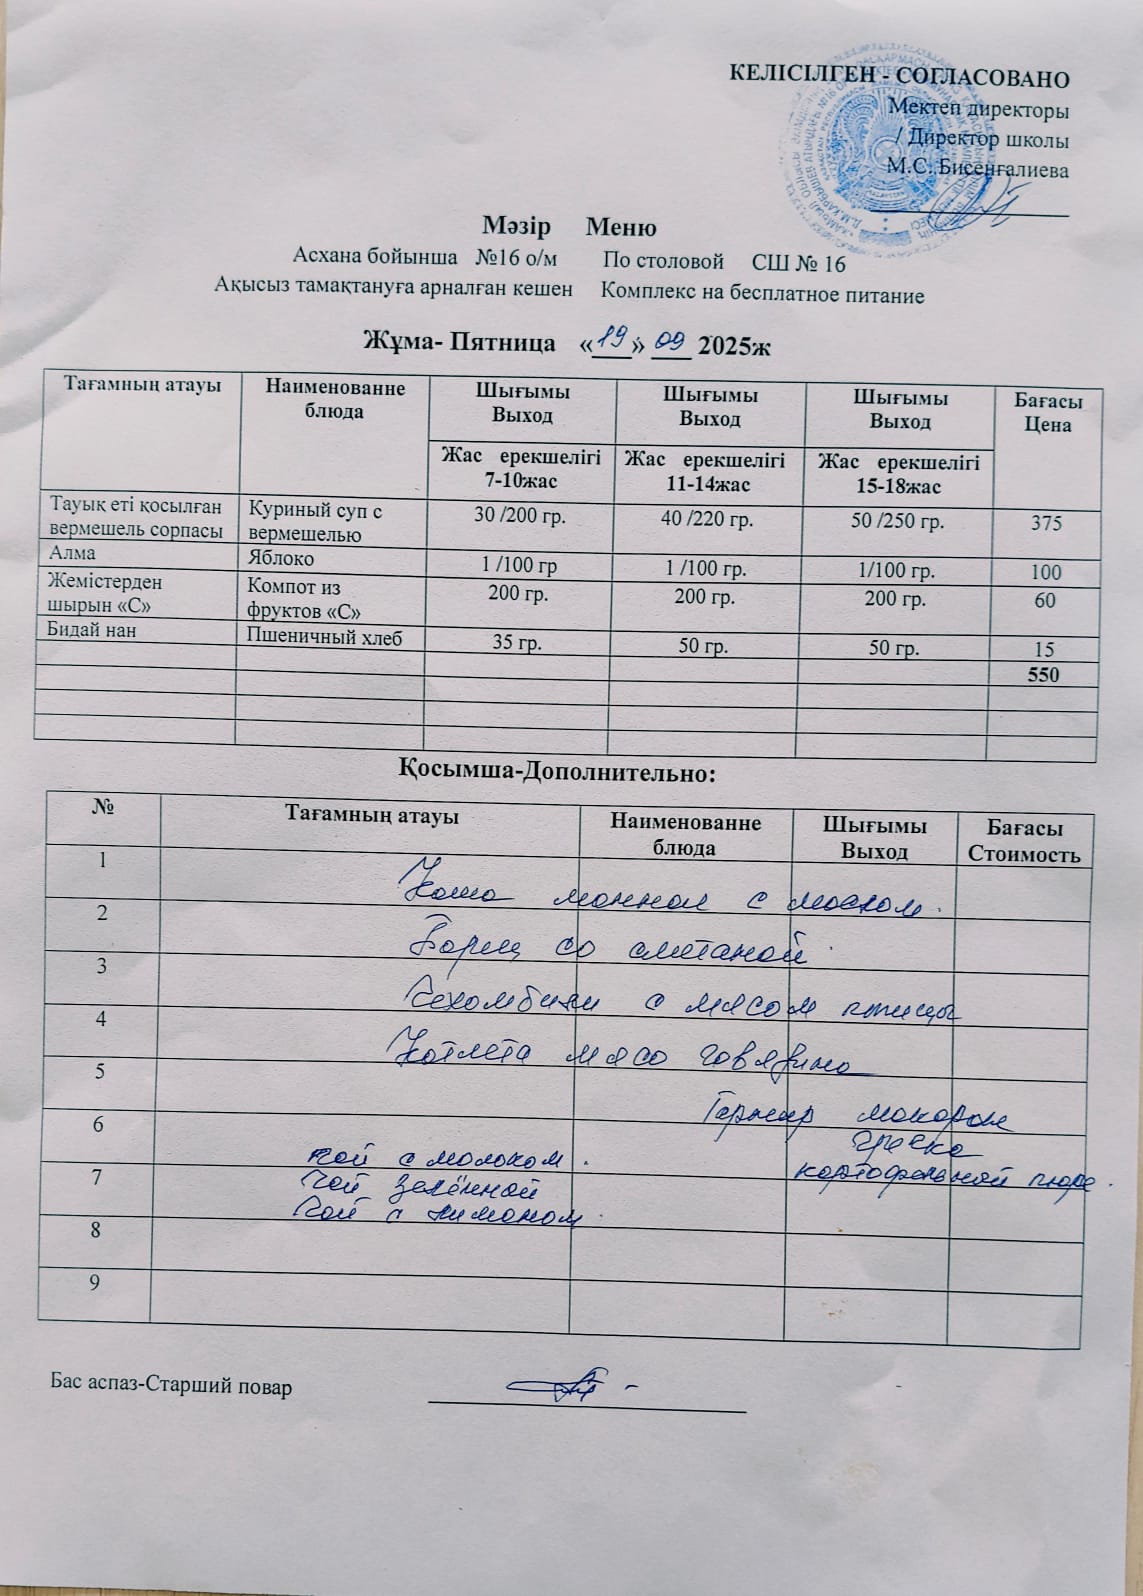 КЕЛІСІЛГЕН - СОГЛАСОВАНО
Мектеп директоры
/ Директор школы
М.С. Бисенғалиева
Мәзір Меню
Асхана бойынша №16 о/м По столовой СШ № 16
Ақысыз тамақтануға арналған кешен Комплекс на бесплатное питание
Жұма- Пятница «19» 09 2025ж
Тағамның атауы Наименованне блюда Шығымы Выход Шығымы Выход Шығымы Выход Бағасы Цена
Жас ерекшелігі 7-10жас Жас ерекшелігі 11-14жас Жас ерекшелігі 15-18жас
Тауық еті қосылған вермешель сорпасы Куриный суп с вермешелью 30 /200 гр. 40 /220 гр. 50 /250 гр. 375
Алма Яблоко 1 /100 гр 1 /100 гр. 1/100 гр. 100
Жемістерден шырын «С» Компот из фруктов «С» 200 гр. 200 гр. 200 гр. 60
Бидай нан Пшеничный хлеб 35 гр. 50 гр. 50 гр. 15
550
Қосымша-Дополнительно:
№ Тағамның атауы Наименованне блюда Шығымы Выход Бағасы Стоимость
1 Каша манная с маслом.
2 Борщ со сметаной
3 с мясом птицы
4 Котлета мясо говядина
5 Гарнир макарон
6 гречка
чай с молоком. картофельной пюре.
7 Чай зелённой
Чай с лимоном.
8
9
Бас аспаз-Старший повар